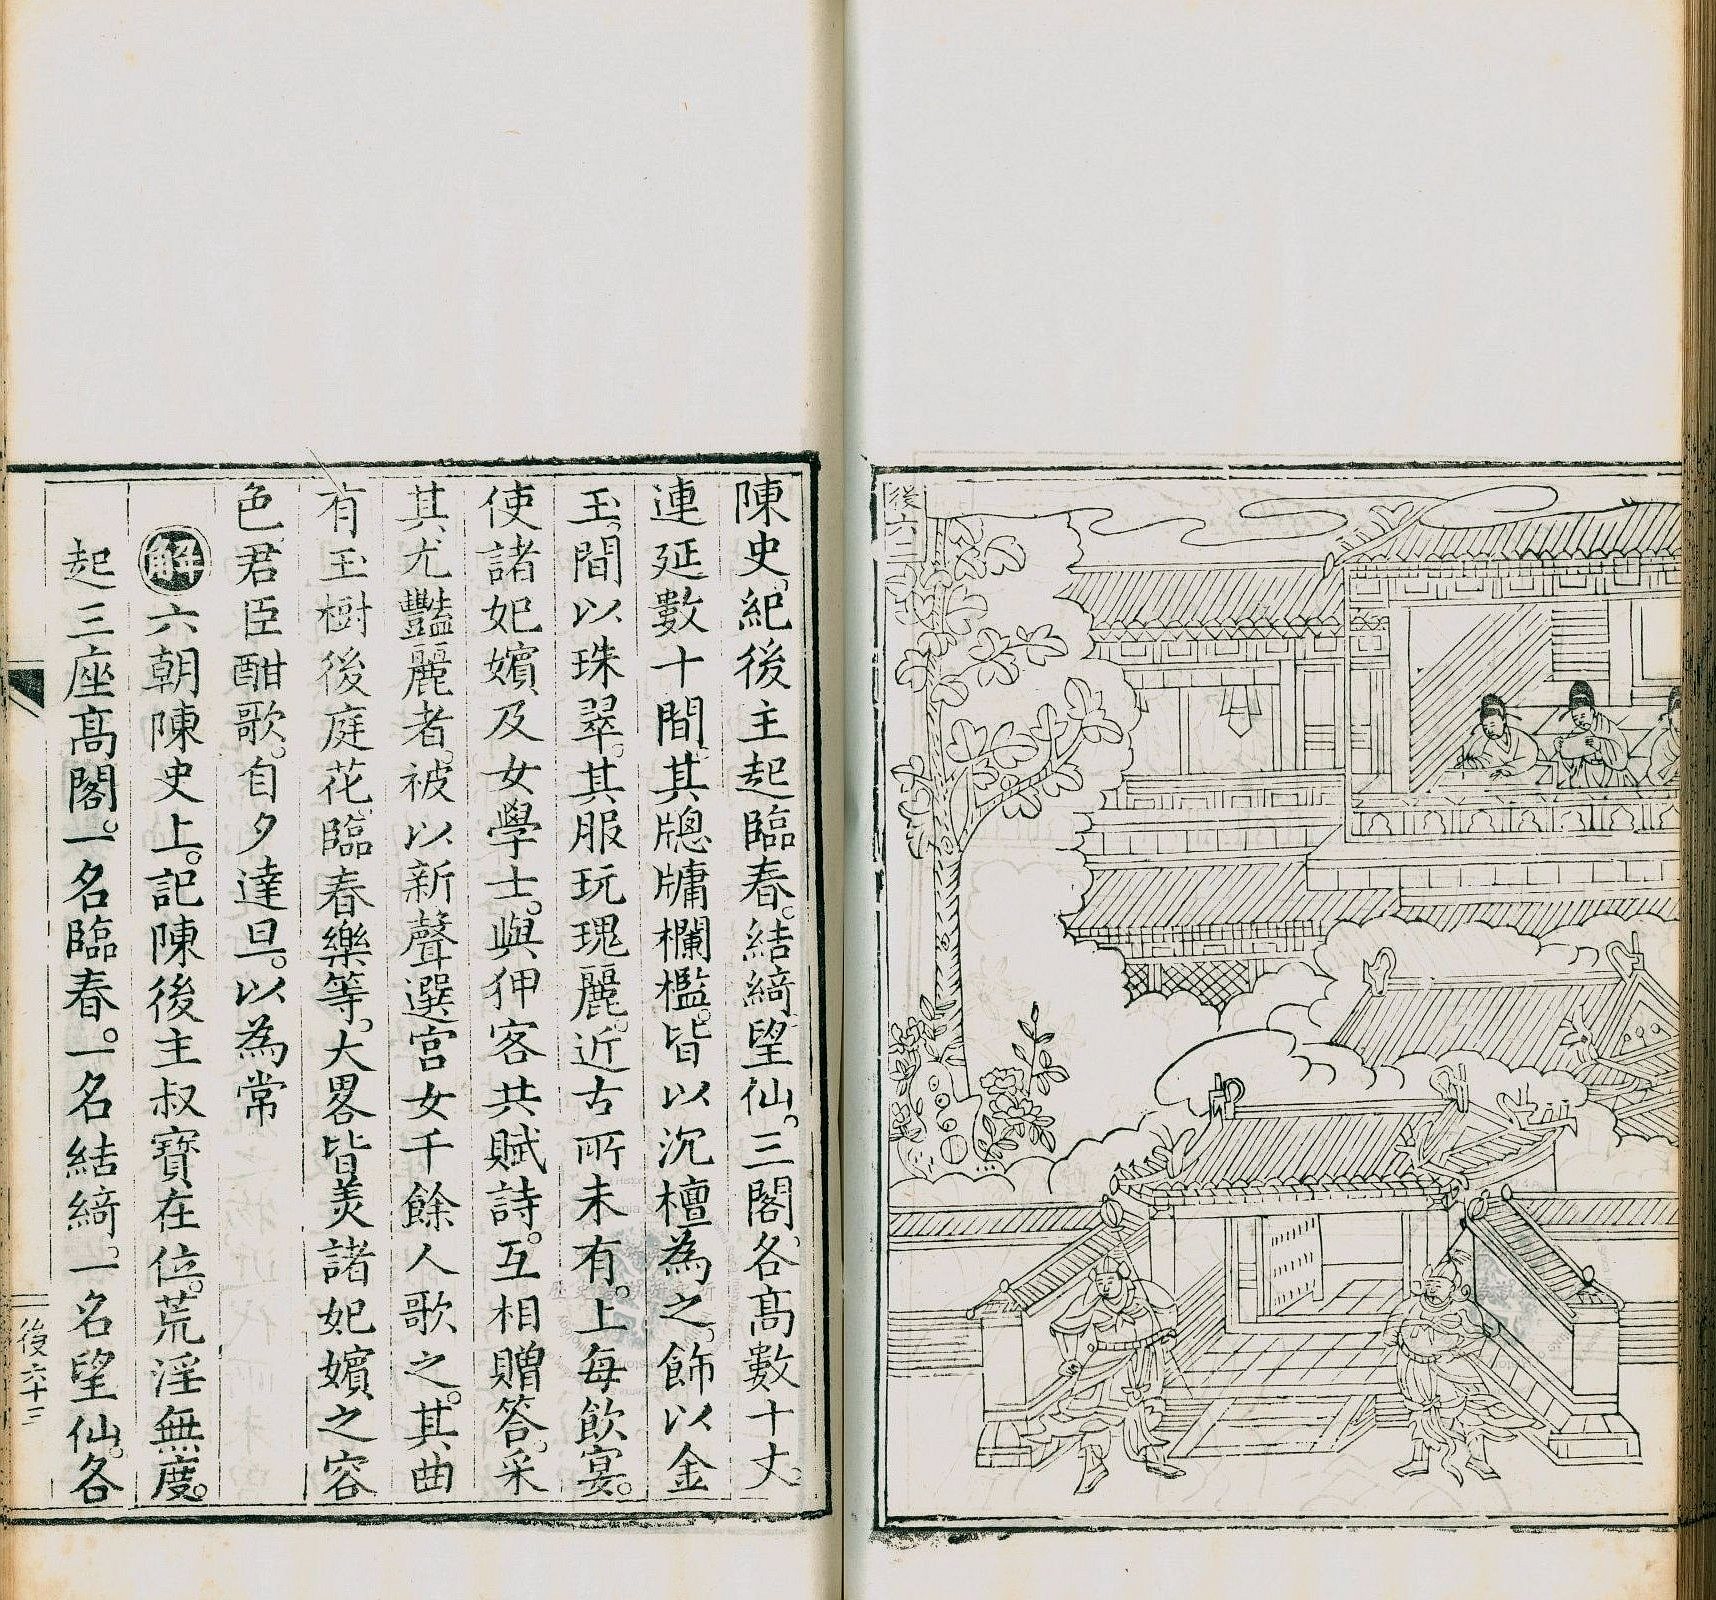 後六二
陳史紀後主起臨春。結綺望仙。三閣。各高數十丈。
連延數十間。其牕牗欄檻。皆以沉檀為之。飾以金
玉。間以珠翠。其服玩瑰麗。近古所未有。上每飲宴。
使諸妃嬪及女學士。與狎客共賦詩。互相贈答。采
其尤豔麗者。被以新聲選宮女千餘人歌之。其曲
有玉樹後庭花。臨春樂等。大畧皆美諸妃嬪之容
色。君臣酣歌。自夕達旦。以為常
解 六朝陳史上。記陳後主叔寶在位。荒淫無度。
起三座高閣。一名臨春。一名結綺。一名望仙。各
後六十三